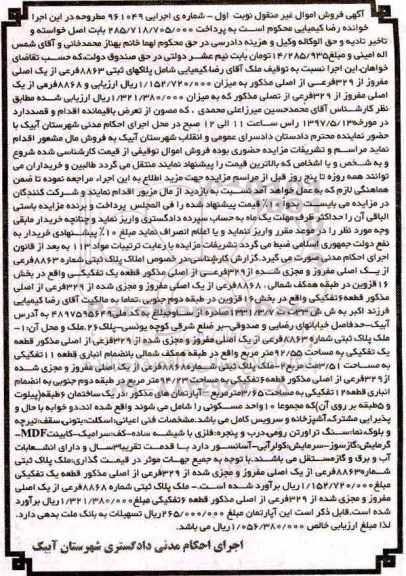 آگهی فروش اموال غیر منقول نوبت اول - شماره ی اجرایی ۹۶۱۰۴۹ مطروحه در این اجرا
خوانده رضا کیمیایی محکوم است به پرداخت ۲۸۵/۷۱۸/۷۰۵/۰۰۰ بابت اصل خواسته و
تاخیر تادیه و حق الوکاله وکیل و هزینه دادرسی در حق محکوم لهما خانم بهناز محمدخانی و آقای شمس
اله امینی و مبلغ ۱۴/۲۸۵/۹۳۵ تومان بابت نیم عشر دولتی در حق صندوق دولت، که حسب تقاضای
خواهان، این اجرا نسبت به توقیف ملک آقای رضا کیمیایی شامل پلاکهای ثبتی ۸۸۶۳ فرعی از یک اصلی
مفروز از ۳۲۹ فرعی از اصلی مذکور به میزان ۱/۱۵۲/۷۲۰/۰۰۰ ریال ارزیابی و ۸۸۶۸ فرعی از یک
اصلی مفروز از ۳۲۹ فرعی از اصلی مذکور که به میزان ۱/۳۲۱/۳۸۰/۰۰۰ ریال ارزیابی شده مطابق
نظر کارشناس آقای محمدحسین میرزاعلی محمدی ، که مصون از تعرض باقیمانده اقدام و قصد دارد
در مورخه ۱۳۹۷/۵/۱۳ راس ساعت ۱۱ الی ۱۲ صبح در محل اجرای احکام مدنی شهرستان آبیک با
حضور نماینده محترم دادستان دادسرای عمومی و انقلاب شهرستان آبیک به فروش مال مشعور اقدام
نماید مراسم و تشریفات مزایده حضوری بوده فروش اموال توقیفی از قیمت کارشناسی شده شروع
و به شخص و یا اشخاص که بالاترین قیمت را پیشنهاد نمایند منتقل می گردد طالبین و خریداران می
توانند همه روزه تا پنج روز قبل از مراسم مزایده جهت مزید اطلاع به این اجرا، مراجعه نموده تا ضمن
هماهنگی لازم که به عمل خواهد آمد نسبت به بازدید از مال مزبور اقدام نمایند و شرکت کنندگان
در مزایده می بایست ۱۰٪ قیمت پیشنهاد شده را فی المجلس پرداخت و برنده مزایده باستی
الباقی آن را حداکثر ظرف مهلت یک ماه به حساب سپرده دادگستری واریز نماید و چنانچه خریدار مابقی
وجه مورد نظر را در موعد مقرر واریز ننماید و یا اعلام انصراف نماید مبلغ ۱۰٪ پیشنهادی خریدار به
نفع دولت جمهوری اسلامی ضبط می گردد تشریفات مزایده با رعایت ترتیبات مواد ۱۱۳ به بعد از قانون
اجرای احکام مدنی صورت می گیرد. گزارش کارشناسی: در خصوص املاک پلاک ثبتی شماره ۸۸۶۳ فرعی
از یک اصلی مفروز و مجزی شده از ۳۲۹ فرعی از اصلی مذکور قطعه یک تفکیکی واقع در بخش
۱۶ قزوین در طبقه همکف شمالی ، ۸۸۶۸ فرعی از اصلی مفروز و مجزی شده از ۳۲۹ فرعی از اصلی
مذکور قطعه ۶ تفکیکی واقع در بخش ۱۶ قزوین در طبقه دوم جنوبی، تماما به مالکیت آقای رضا کیمیایی
فرزند اکبر به ش ش ۳۳-۱۳۳۱/۳/۷ صادره از ساوجبلاغ به کد ملی ۴۸۹۷۵۹۵۶۴۹ به آدرس
آبیک-حدفاصل خیابانهای رضایی و صدوقی-بر ضلع شرقی کوچه یونسی-پلاک ۲۶، ملک و محل آن: ۱-
ملک پلاک ثبتی شماره ۸۸۶۳ فرعی از یک اصلی مفروز و مجزی شده از ۳۲۹ فرعی از اصلی مذکور قطعه
یک تفکیکی به مساحت ۹۲/۵۵ متر مربع واقع در طبقه همکف شمالی بانضمام انباری قطعه ۱۱ تفکیکی
به مساحت ۳/۵۱ متر مربع ۲- ملک پلاک ثبتی شماره ۸۸۶۸ فرعی از یک اصلی مفروز و مجزی شده
از ۳۲۹ فرعی از اصلی مذکور قطعه ۶ تفکیکی به مساحت متر مربع در طبقه دوم جنوبی به انضمام
انباری قطعه ۱۲ تفکیکی به مساحت ۳/۶۵ مترمربع- آپارتمان های مذکور :در یک ساختمان ۶ طبقه (پیلوت
و ۵ طبقه بر روی آن) که مجموعا ۱۰ واحد مسکونی را شامل می شوند واقع شده اند، دو خوابه با حال و
پذیرایی مشترک، آشپزخانه و سرویس کامل می باشد. مشخصات فنی اعیانی: اسکلت-بتونی، سقف: تیرچه
و بلوک، نما: سنگ تراورتن رومی-درب و پنجره: فلزی با شیشه ساده-کف: سرامیک-کابینت MDF-
گرمایش: گازسوز-سرمایش: کولرآبی-آسانسور دارد با قدمت تقریبا ۳ سال و دارای انشعابات
آب و برق و گاز مستقل می باشند. با توجه به جمیع جهات موثر در قیمت گذاری: ملک پلاک ثبتی
شماره ۸۸۶۳ فرعی از یک اصلی مفروز و مجزی شده از ۳۲۹ فرعی از اصلی مذکور قطعه یک تفکیکی
مبلغ ۱/۱۵۲/۷۲۰/۰۰۰ ریال برآورد شده است. - ملک پلاک ثبتی شماره ۸۸۶۸ فرعی از یک اصلی
مفروز و مجزی شده از ۳۲۹ فرعی از اصلی مذکور قطعه ۶ تفکیکی مبلغ ۱/۳۲۱/۳۸۰/۰۰۰ ریال برآورد
شده است. قابل ذکر است این آپارتمان مبلغ ۲۶۵/۰۰۰/۰۰۰ ریال تسهیلات به بانک ملت بدهی دارد.
لذا مبلغ ارزیابی خالص ۱/۰۵۶/۳۸۰/۰۰۰ ریال می باشد.
اجرای احکام مدنی دادگستری شهرستان آبیک